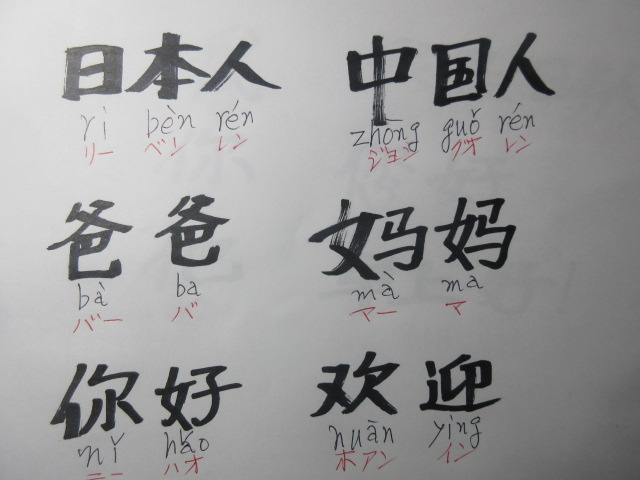 日本人 中国人
rì bèn rén zhōng guǒ rén
リー ベン レン ジョン グオ レン
爸爸 妈妈
bà ba mà ma
バー バ マー マ
你好 欢迎
nǐ hǎo huàn yìng
ニー ハオ ホアン イン